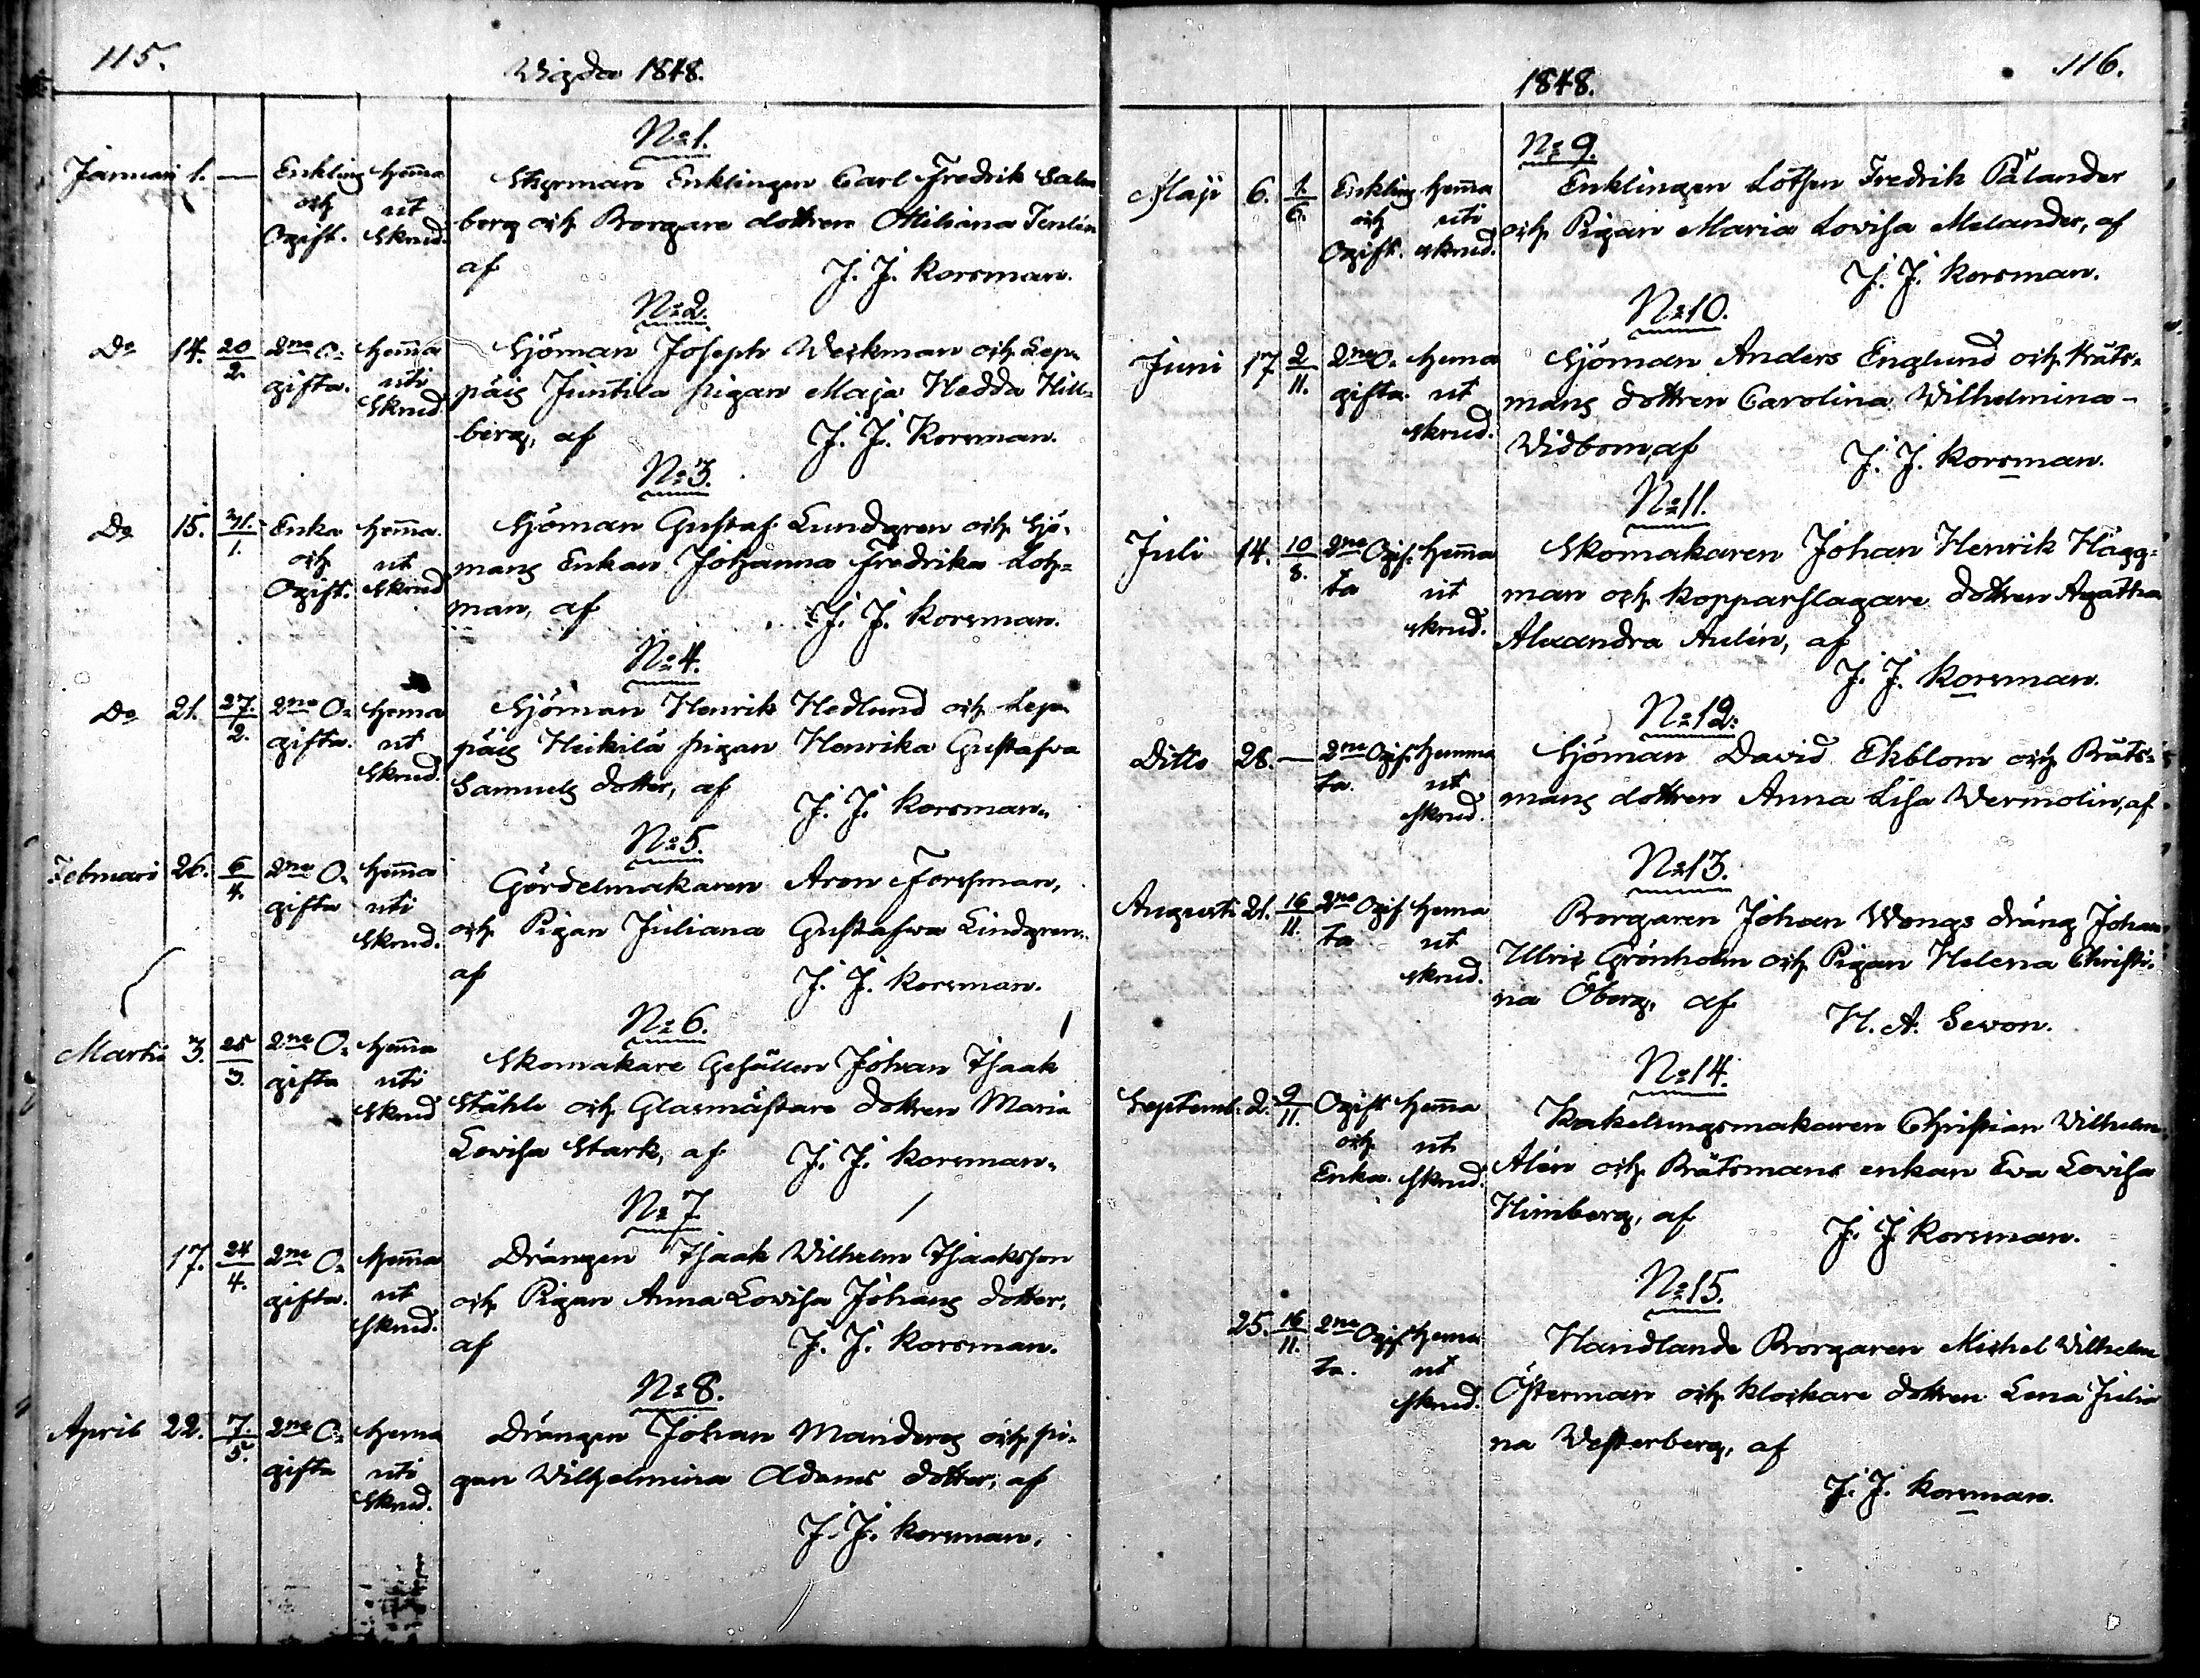 115.
Wigda 1848.
N:o 1.
Januari 1. — Enkling och Ogift. hemma ut Skrud.
Styrman Enklingen Carl Fredrik Salm
berg och Borgare dottren Ottiliana Tenlén
af J. J. Korsman.
N:o 2.
Do 14. 20/2. 2ne O- gifta. hemma uti Skrud
Sjöman Joseph Weckman och Lep-
päis Juntila pigan Maja Hedda Hill-
berg, af J. J. Korsman.
N:o 3.
Do 15. 31./1. Enka och Ogift. hemma. ut Skrud
Sjöman Gustaf Lundgren och Sjö-
mans Enkan Johanna Fredrika Loh-
man, af J. J. Korsman.
N:o 4.
Do 21. 27./2. 2ne O- gifta. hema ut Skrud.
Sjöman Henrik Hedlund och Lep-
päis Heikilä pigan Henrika Gustafva
Samuels dotter, af J. J. Korsman.
N:o 5.
Februari 26. 6/4. 2ne O- gifta hemma uti Skrud.
Gördelmakaren Aron Forssman,
och Pigan Juliana Gustafwa Lindgren.
af J. J. Korsman.
N:o 6.
Martii 3. 25/3. 2ne O- gifta hemma uti Skrud
Skomakare Gesällen Johan Isaak
Ståhle och Glasmästare dottren Maria
Lovisa Stark, af J. J. Korsman.
N:o 7
17. 24/4. 2ne O- gifta. hemma ut skrud.
Drängen Isaak Wilhelm Isaaksson
och Pigan Anna Lovisa Johans dotter,
af J. J. Korsman.
N:o 8.
April 22. 7./5. 2ne O- gifta hema uti Skrud.
Drängen Johan Manders och pi-
gan Wilhelmina Adams dotter, af
J. J. Korsman.
116.
1848.
N:o 9.
Maji 6. 1./6. Enkling och Ogift. hemma uti skrud.
Enklingen Lotsen Fredrik Pålander
och Pigan Maria Lovisa Melander, af
J. J. Korsman.
N:o 10.
Juni 17 2/11. 2ne O- gifta. hema ut skrud.
Sjöman Anders Englund och Båts-
mans dottren Carolina Wilhelmina
Widbom, af J. J. Korsman.
N:o 11.
Juli 14. 10/8. 2ne Ogif- ta hemma ut skrud.
Skomakaren Johan Henrik Hägg-
man och Kopparslagare dottren Agatha
Alexandra Aulén, af
J. J. Korsman.
N:o 12.
Ditto 28. — 2ne Ogif- ta. hemma ut skrud.
Sjöman David Ekblom och Båts-
mans dottren Anna Lisa Wermolin, af
N:o 13.
Augusti 21. 16/11. 2ne Ogif ta hema ut skrud.
Borgaren Johan Wongs dräng Johan
Ulric Grönholm och Pigan Helena Christi-
na Öberg, af H. A. Sevon.
N:o 14.
Septemb. 2. 9/11. Ogift och Enka. hemma ut skrud.
Kakelungsmakaren Christian Wilhelm
Alén och Båtsmans enkan Eva Lovisa
Himberg, af J. J. Korsman.
N:o 15.
25. 16/11. 2ne Ogif ta. hema ut skrud.
Handlande Borgaren Michel Wilhelm
Österman och Klockare dottren Lena Julia
na Westerberg, af
J. J. Korsman.